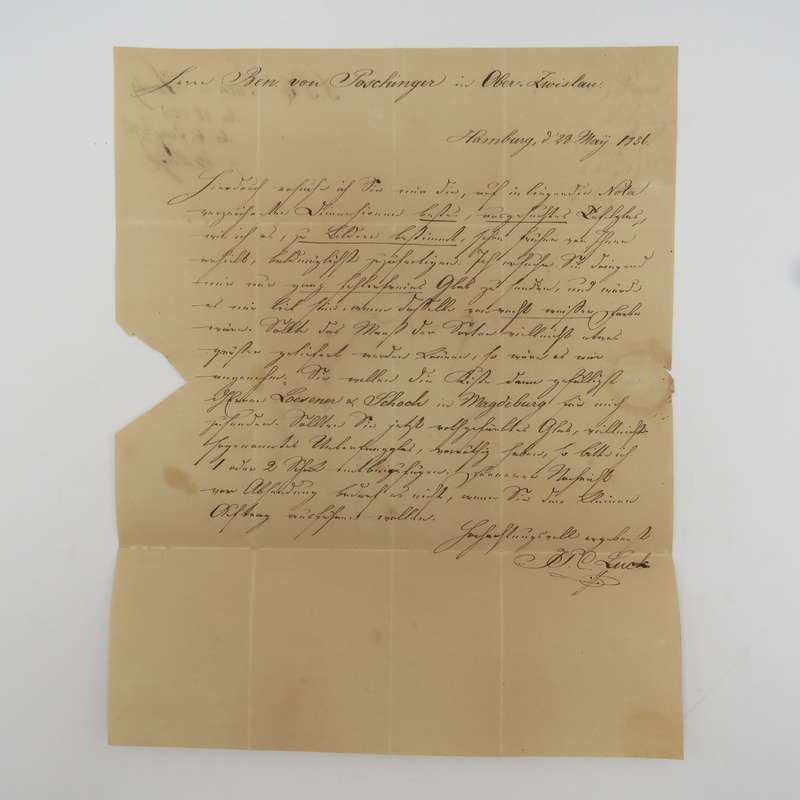 Herrn Ben. von Poschinger in Ober-Zwislau.
Hamburg, d. 28 May 1836.
Hierdurch ersuche ich Sie mir die, auf inliegender Nota
verzeichneten Dimensionen bestes, ausgesuchtes Tafelglas,
wie ich es, zu Bildern bestimmt, schon früher von Ihnen
erhielt, baldmöglichst zuzufertigen. Ich ersuche Sie dringend
mir nur ganz fehlerfreies Glas zu senden, und würde
es mir lieb sein wenn dasselbe von recht weißer Farbe
wäre. Sollte das Maaß der Sorten vielleicht etwas
größer geliefert werden können, so wäre es mir
angenehm. Sie wollen die Kiste dann gefälligst
Herren Loesener & Schoch in Magdeburg für mich
zusenden. Sollten Sie jetzt rothgefärbtes Glas, vielleicht
sogenanntes Ueberfangglas, vorräthig haben, so bitte ich
1 oder 2 Schock mit beizufügen. Fernerer Nachricht
vor Absendung bedarf es nicht, wenn Sie den kleinen
Auftrag ausführen wollen.
Hochachtungsvoll ergebenst
P. C. Luck